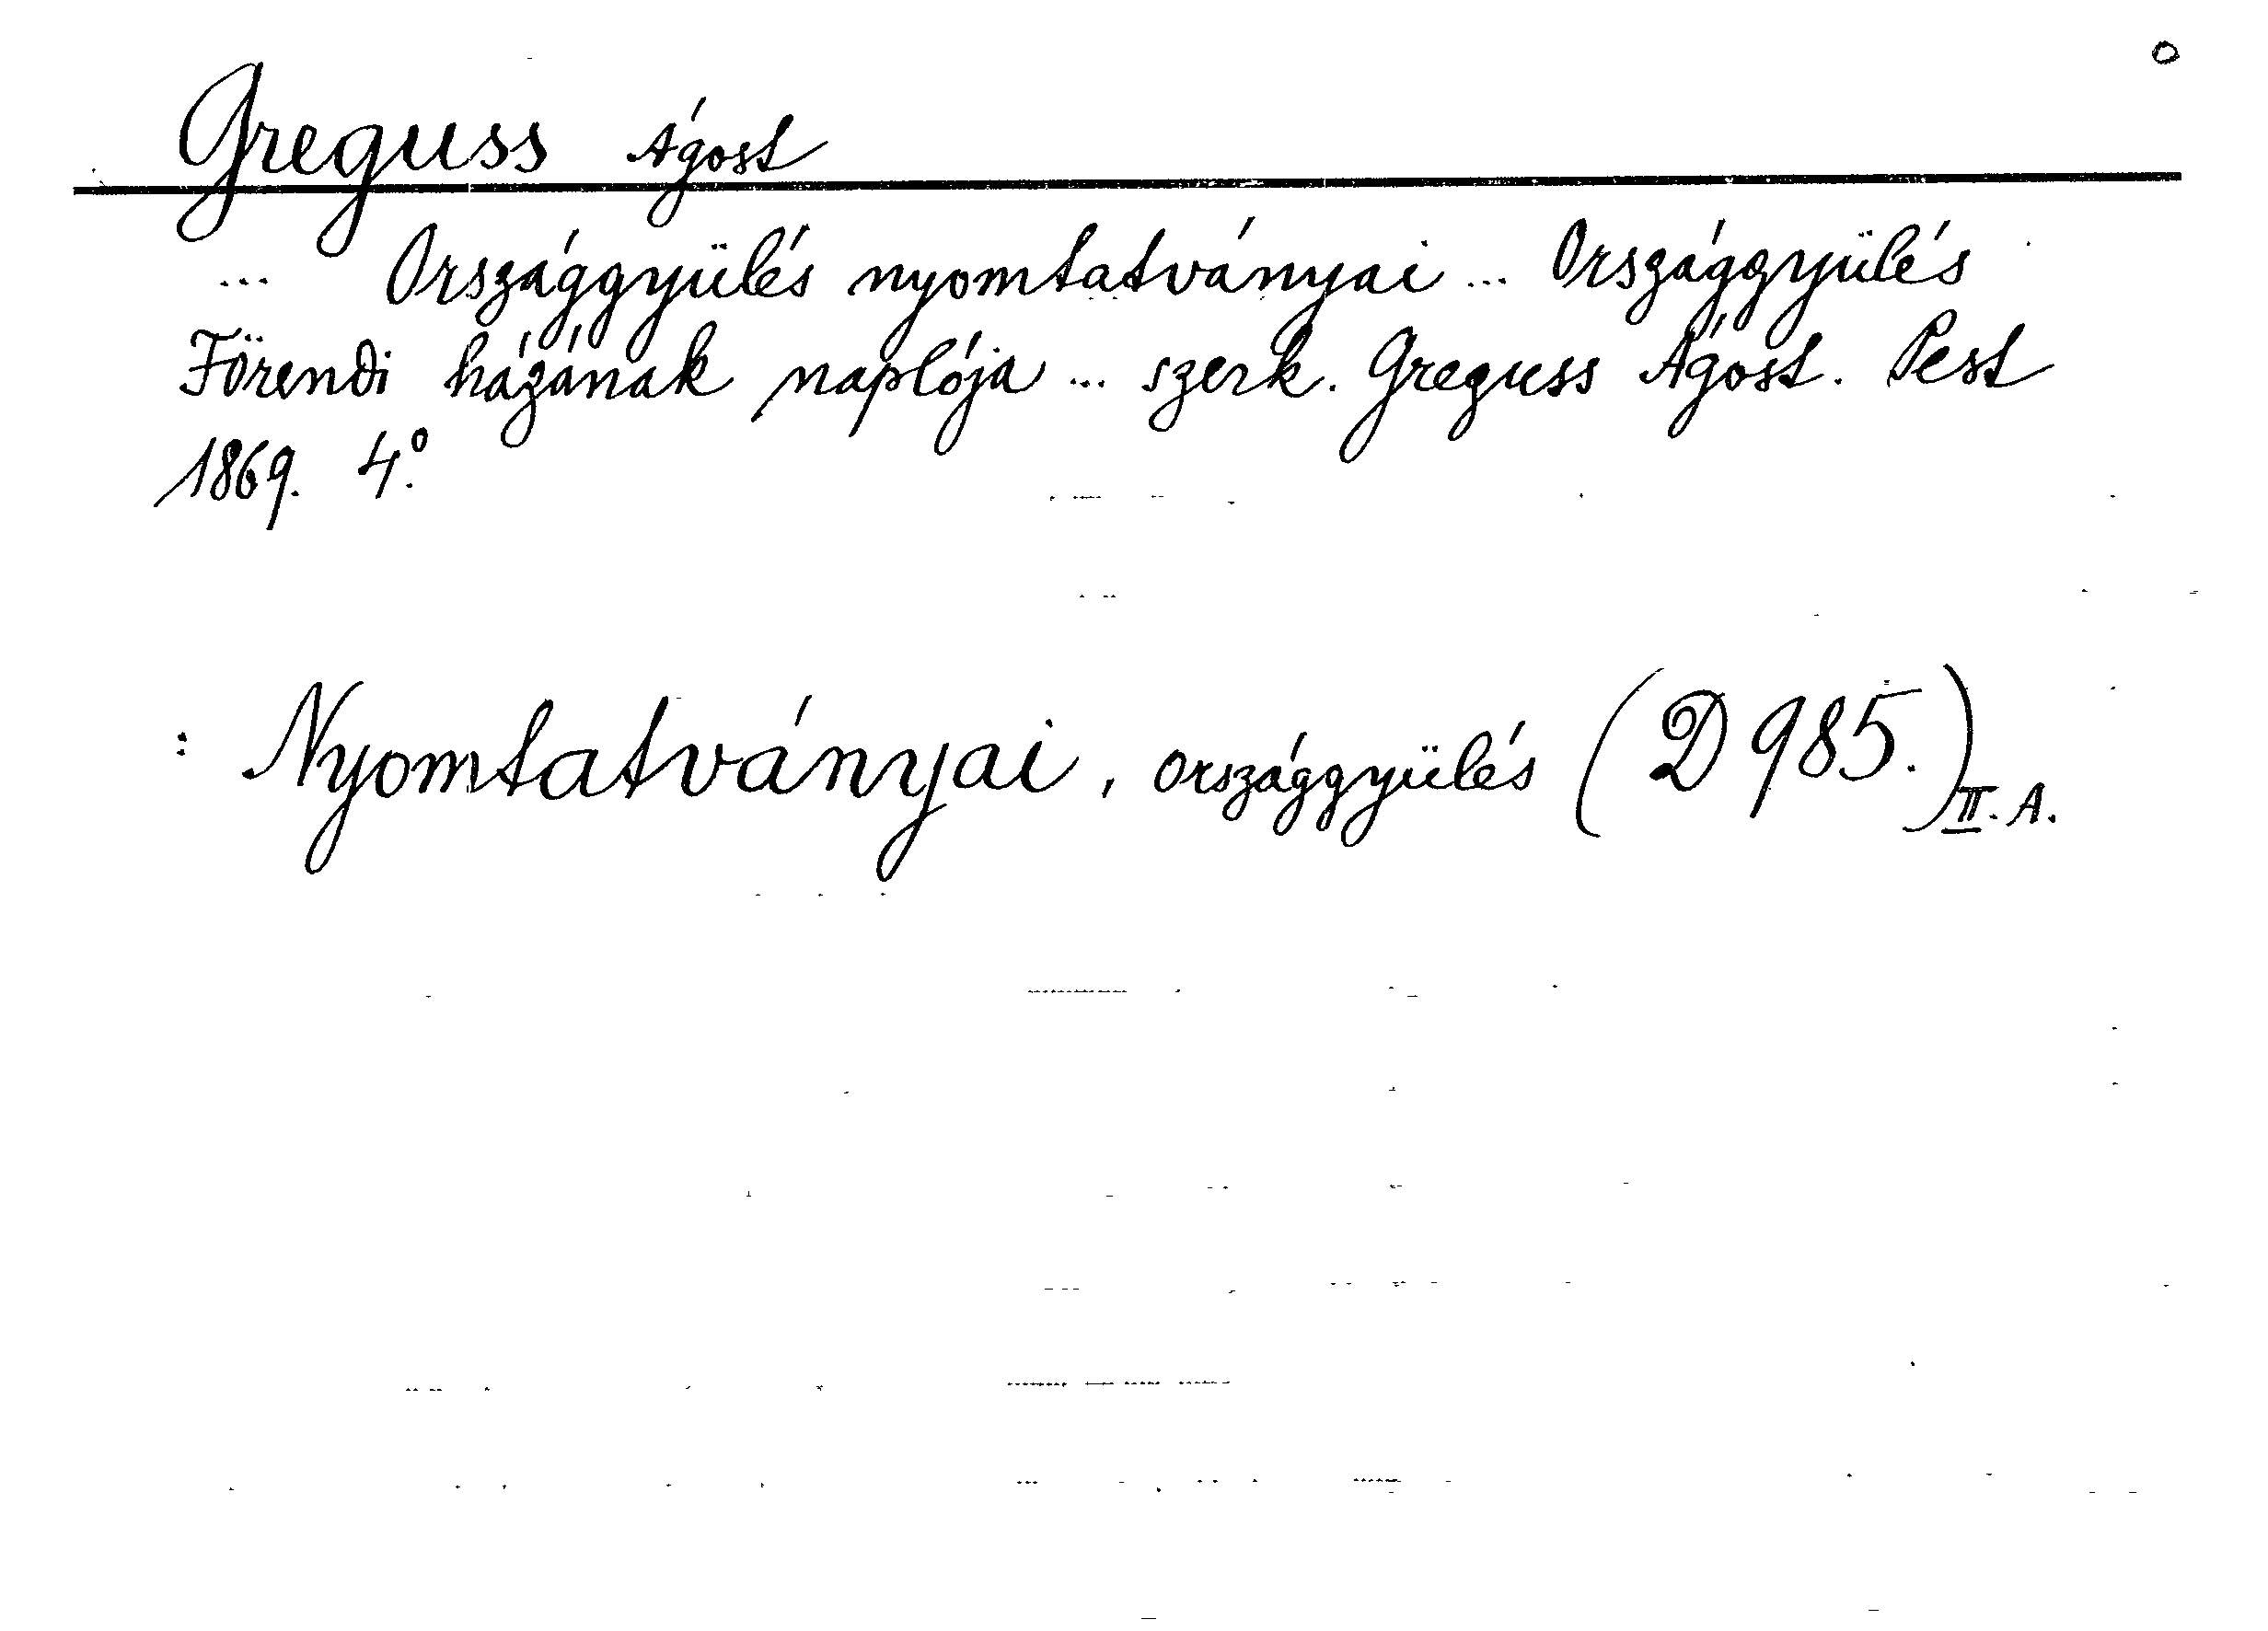 Greguss Ágost
... Országgyülés nyomtatványai ... Országgyülés
Förendi házának naplója ... szerk. Greguss Ágost. Pest
1869. 4.°
: Nyomtatványai, országgyülés (D 985.) II. A.